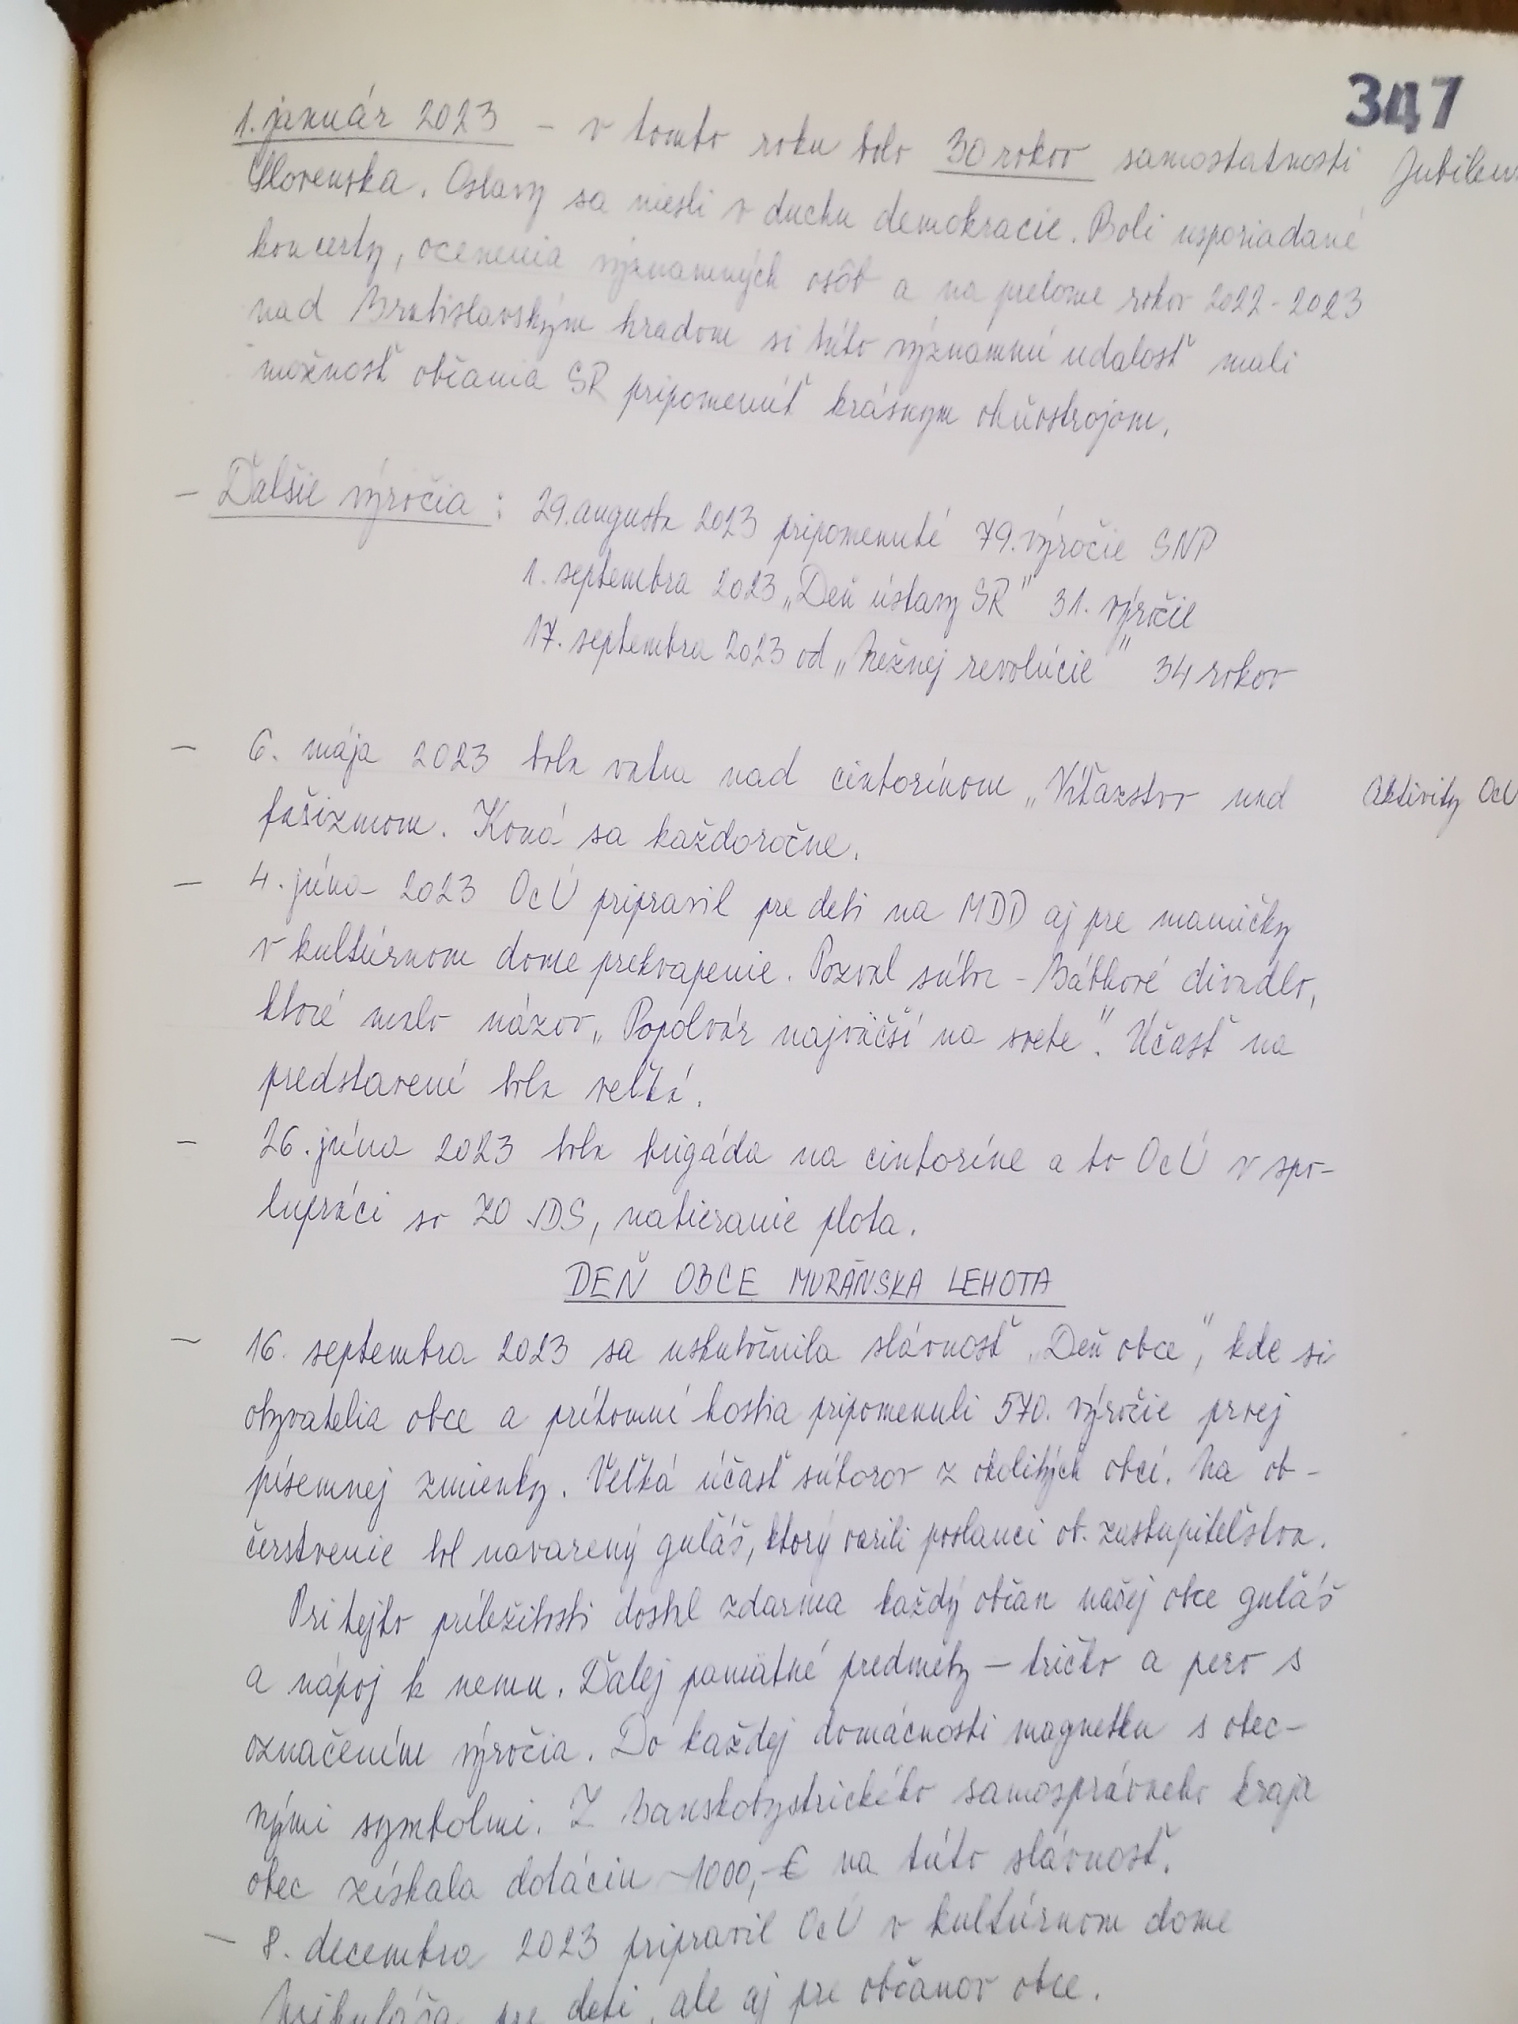 347
1. január 2023 - v tomto roku bolo 30 rokov samostatnosti
Slovenska. Oslavy sa niesli v duchu demokracie. Boli usporiadané
koncerty, ocenenia významných osôb a na prelome rokov 2022-2023
nad Bratislavským hradom si túto významnú udalosť mali
možnosť občania SR pripomenúť krásnym ohňostrojom.
- Ďalšie výročia: 29. augusta 2023 pripomenuté 79. výročie SNP
1. septembra 2023 „Deň ústavy SR" 31. výročie
17. septembra 2023 od „Nežnej revolúcie" 34 rokov
- 6. mája 2023 bola vatra nad cintorínom „Víťazstvo nad
Aktivity OcÚ
fašizmom. Koná sa každoročne.
- 4. júna 2023 OcÚ pripravil pre deti na MDD aj pre mamičky
v kultúrnom dome prekvapenie. Pozval súbor - Bábkové divadlo,
ktoré malo názov „Popolvár najväčší na svete". Účasť na
predstavení bola veľká.
- 26. júna 2023 bola brigáda na cintoríne a to OcÚ v spo-
lupráci so ZO JDS, natieranie plota.
DEŇ OBCE MURÁNSKA LEHOTA
- 16. septembra 2023 sa uskutočnila slávnosť „Deň obce", kde si
obyvatelia obce a prítomní hostia pripomenuli 570. výročie prvej
písemnej zmienky. Veľká účasť súborov z okolitých obcí. Na ob-
čerstvenie bol navarený guláš, ktorý varili poslanci ob. zastupiteľstva.
Pri tejto príležitosti dostal zdarma každý občan našej obce guláš
a nápoj k nemu. Ďalej pamätné predmety - tričko a pero s
označením výročia. Do každej domácnosti magnetku s obec-
nými symbolmi. Z Banskobystrického samosprávneho kraja
obec získala dotáciu - 1000,-€ na túto slávnosť.
- 8. decembra 2023 pripravil OcÚ v kultúrnom dome
Mikuláša pre deti, ale aj pre občanov obce.